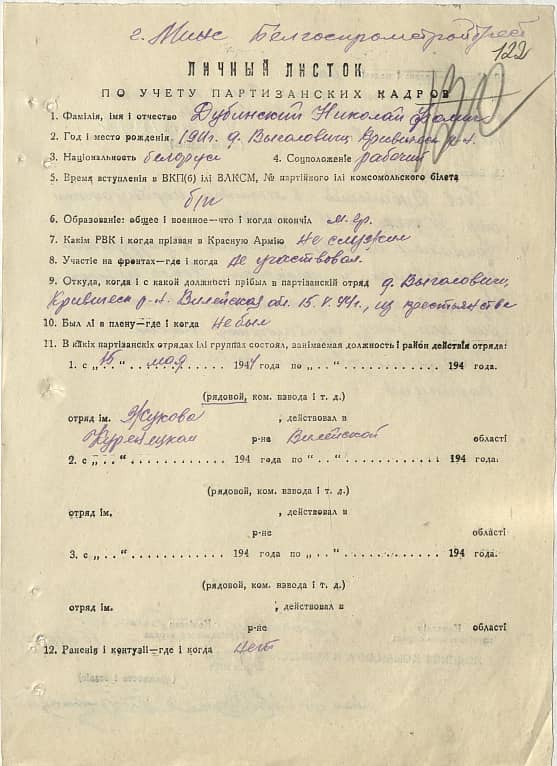 г. Минск Белгоспромстройтрест
122
ЛИЧНЫЙ ЛИСТОК
ПО УЧЕТУ ПАРТИЗАНСКИХ КАДРОВ
1. Фамілія, імя и отчество Дубинский Николай
2. Год і место рождения 1911 г. д.
3. Національность белорус 4. Соцположеніе рабочий
5. Время вступления в ВКП(б) ілі ВЛКСМ, № партійного ілі комсомольского білета
б/п
6. Образованіе: общее і военное—что і когда окончіл
7. Какім РВК і когда прізван в Красную Армію не служил
8. Участіе на фронтах—где і когда не участвовал
9. Откуда, когда і с какой должності прібыл в партізанскій отряд д.
р-на Вилейская обл. 15.V.44г., из крестьянства
10. Был лі в плену—где і когда не был
11. В какіх партізанскіх отрядах ілі группах состоял, занімаемая должность і район действія отряда:
1. с „15“ мая 1944 года по „ . . “ . . . . . . . . . . . 194 года.
(рядовой, ком. взвода і т. д.)
отряд ім. Жукова , действовал в
р-на Вилейской області
2. с „ . . “ . . . . . . . . . . . 194 года по „ . . “ . . . . . . . . . . . 194 года.
(рядовой, ком. взвода і т. д.)
отряд ім. , действовал в
р-не області
3. с „ . . “ . . . . . . . . . . . 194 года по „ . . “ . . . . . . . . . . . 194 года.
(рядовой, ком. взвода і т. д.)
отряд ім. , действовал в
р-не області
12. Раненія і контузіі—где і когда нет